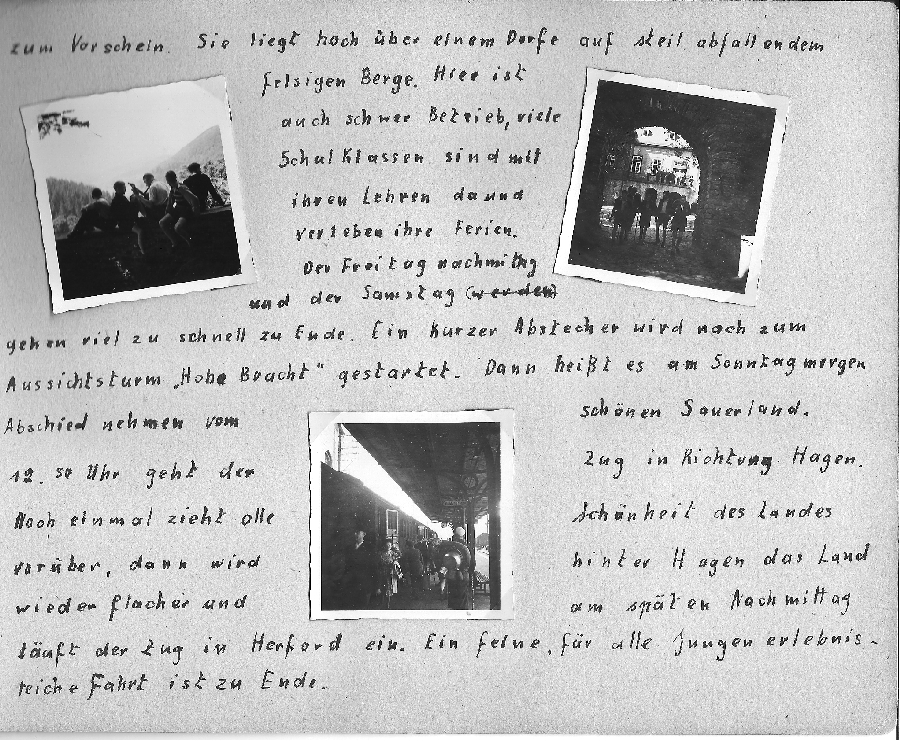 zum Vorschein. Sie liegt hoch über einem Dorfe auf steil abfallendem
felsigen Berge. Hier ist
auch schwer Betrieb, viele
Schulklassen sind mit
ihren Lehren da und
verleben ihre Ferien.
Der Freitag nachmittag
und der Samstag (werden)
gehen viel zu schnell zu Ende. Ein kurzer Abstecher wird noch zum
Aussichtsturm „Hohe Bracht" gestartet. Dann heißt es am Sonntagmorgen
Abschied nehmen vom schönen Sauerland.
12.50 Uhr geht der Zug in Richtung Hagen.
Noch einmal zieht alle Schönheit des Landes
vorüber, dann wird hinter Hagen das Land
wieder flacher und am späten Nachmittag
läuft der Zug in Herford ein. Ein feine, für alle Jungen erlebnis-
reiche Fahrt ist zu Ende.